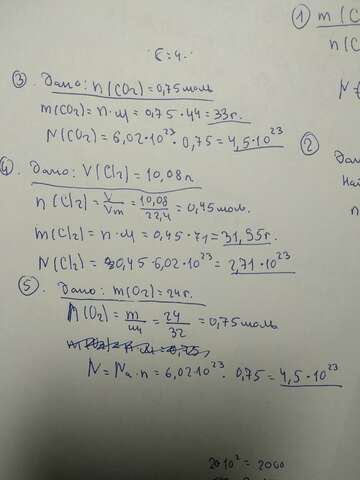 ① m(CO₂
n(C
Б=4.
③. Дано: n(CO₂)=0,75моль
m(CO₂)=n·M=0,75·44=33г.
N(CO₂)=6,02·10²³·0,75=4,5·10²³
②
Дан
Най
④. Дано: V(Cl₂)=10,08л
n(Cl₂)=V/Vm=10,08/22,4=0,45моль.
m(Cl₂)=n·M=0,45·71=31,95г.
N(Cl₂)=0,45·6,02·10²³=2,71·10²³
⑤. Дано: m(O₂)=24г.
n(O₂)=m/M=24/32=0,75моль
N=Nₐ·n=6,02·10²³·0,75=4,5·10²³
20·10²=2000